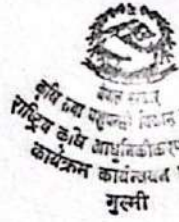 नेपाल सरकार
कृषि तथा पशुपन्छी विकास
राष्ट्रिय कृषि आधुनिकीकरण
कार्यक्रम कार्यान्वयन
गुल्मी